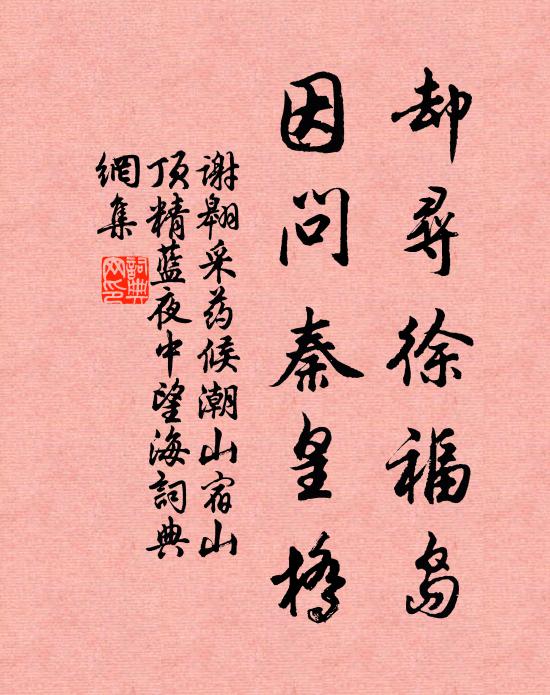 却尋徐福岛
因问秦皇橋
谢翱采药候潮山宿山
顶精蓝夜中望海詞典
網集
詞典網印